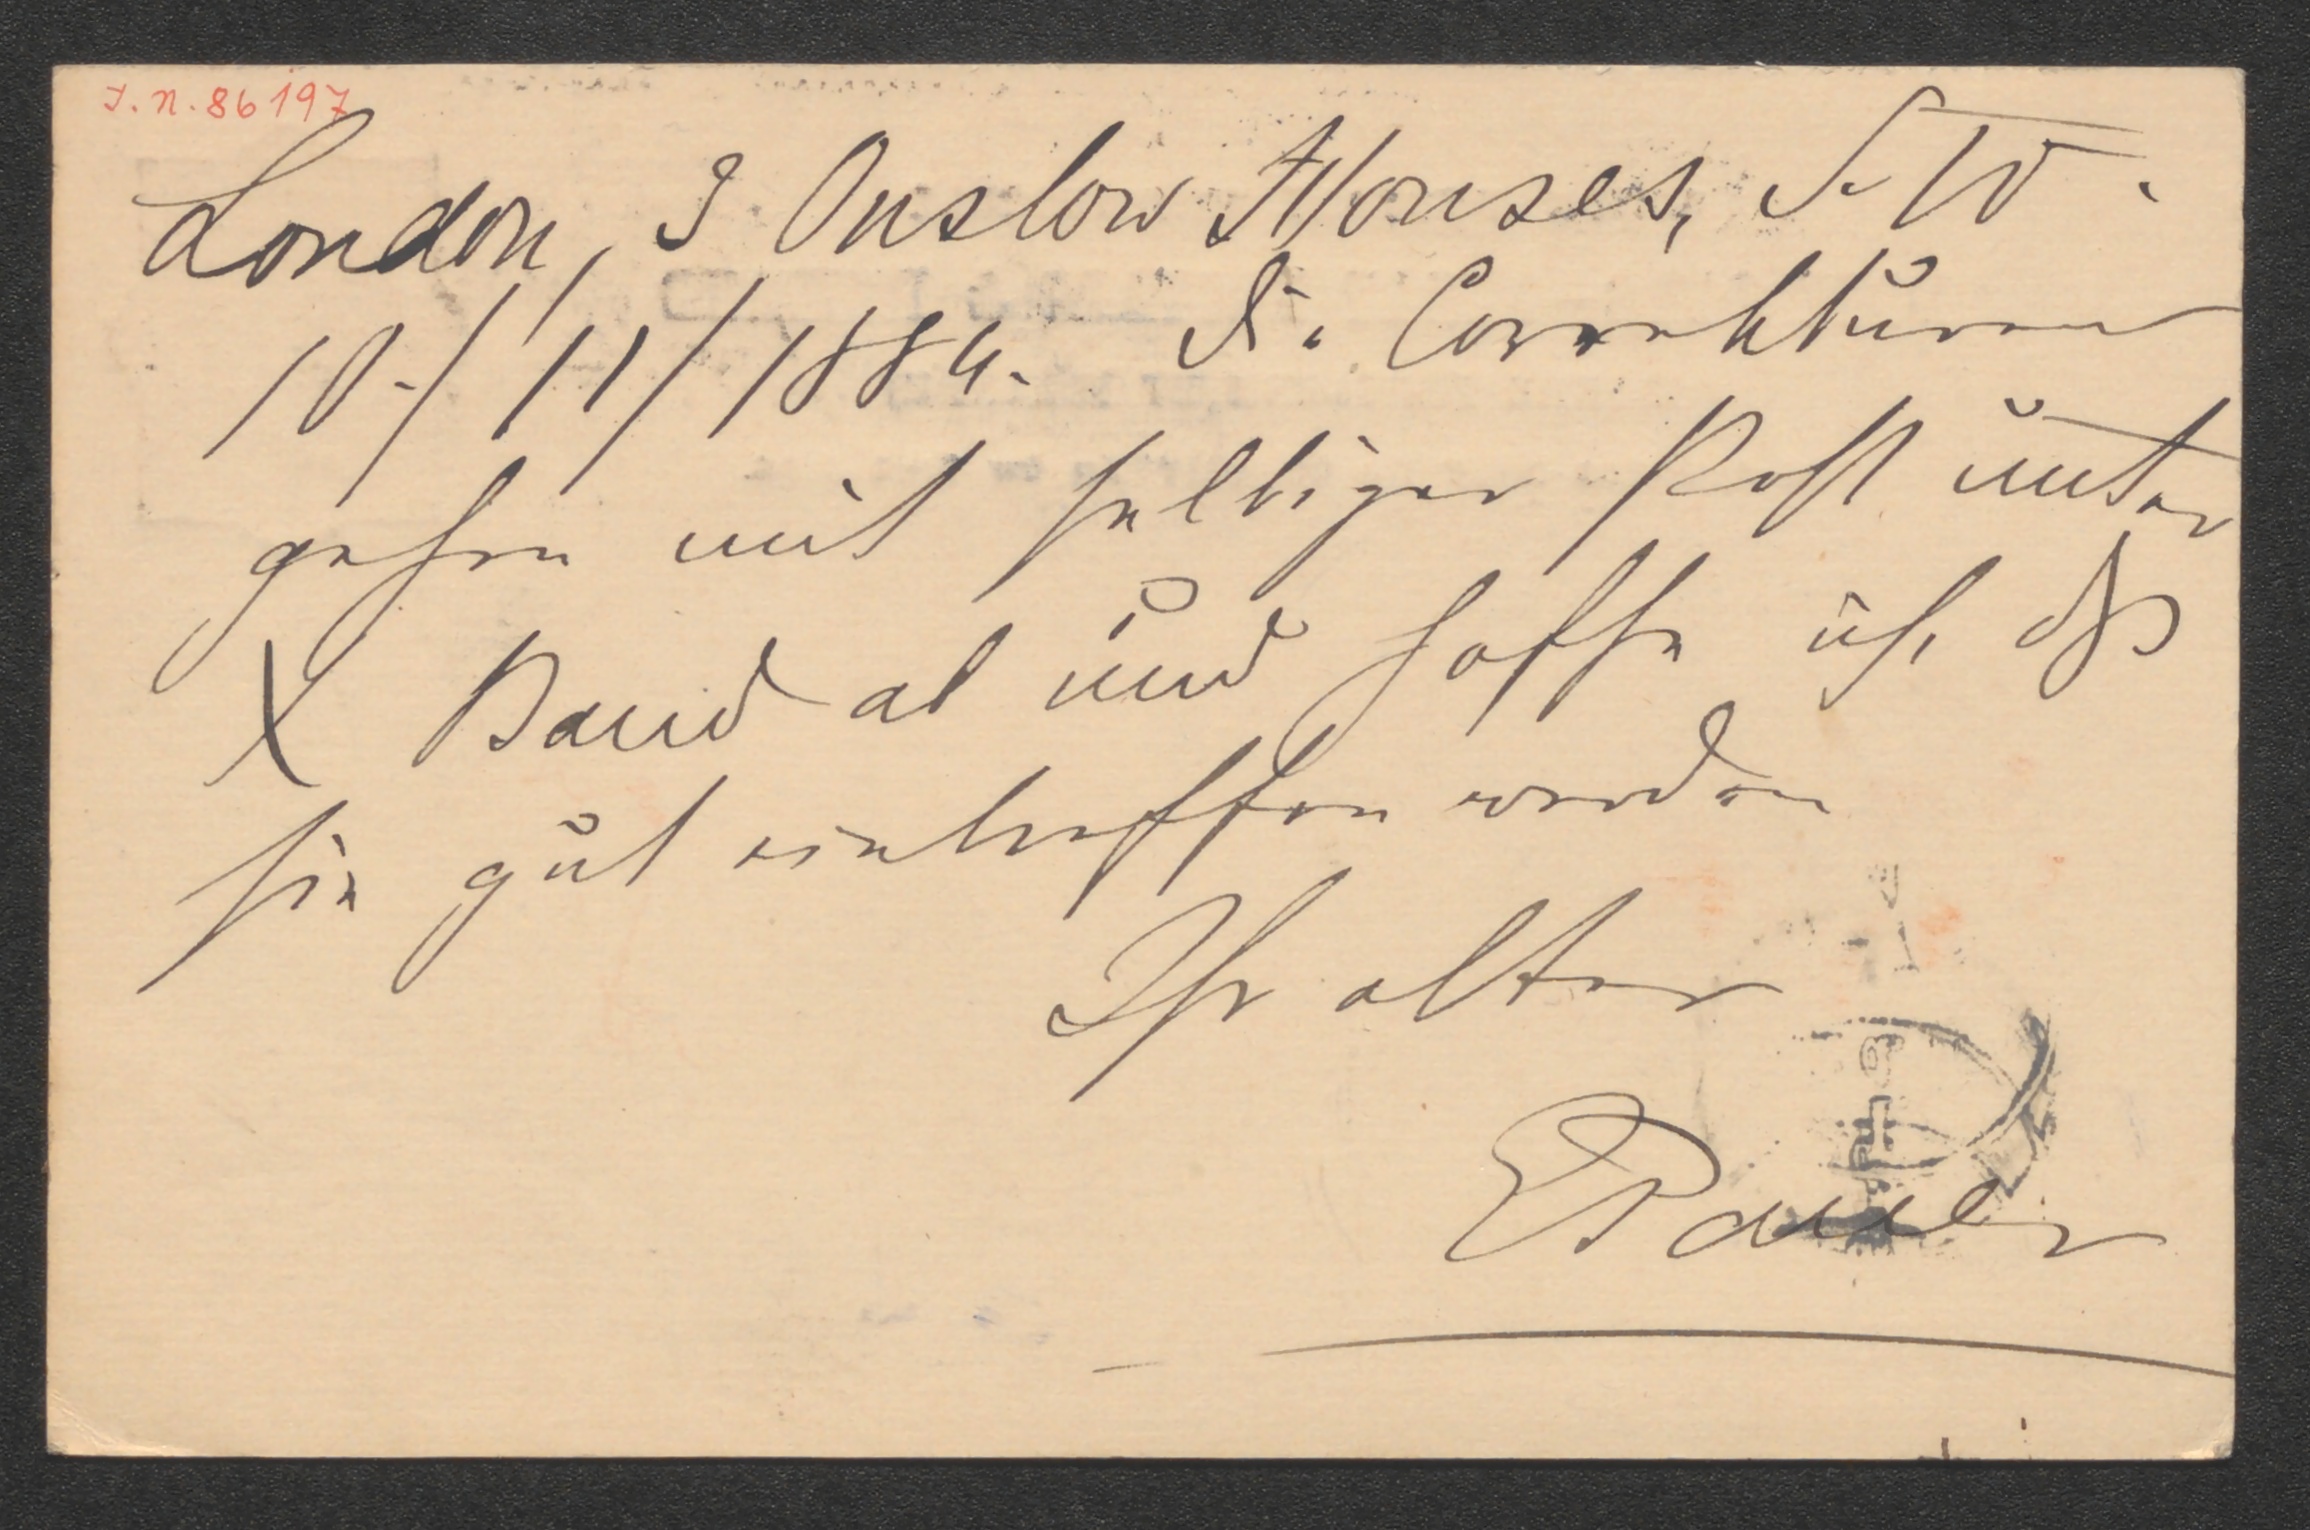 J. N. 86197
London, 3 Onslow Houses, S. W.
10./11/1884. Die Correkturen
gehen mit selbiger Post unter
X Band ab und hoffe ich, dß
sie gut eintreffen werden
Ihr alter
EPauer